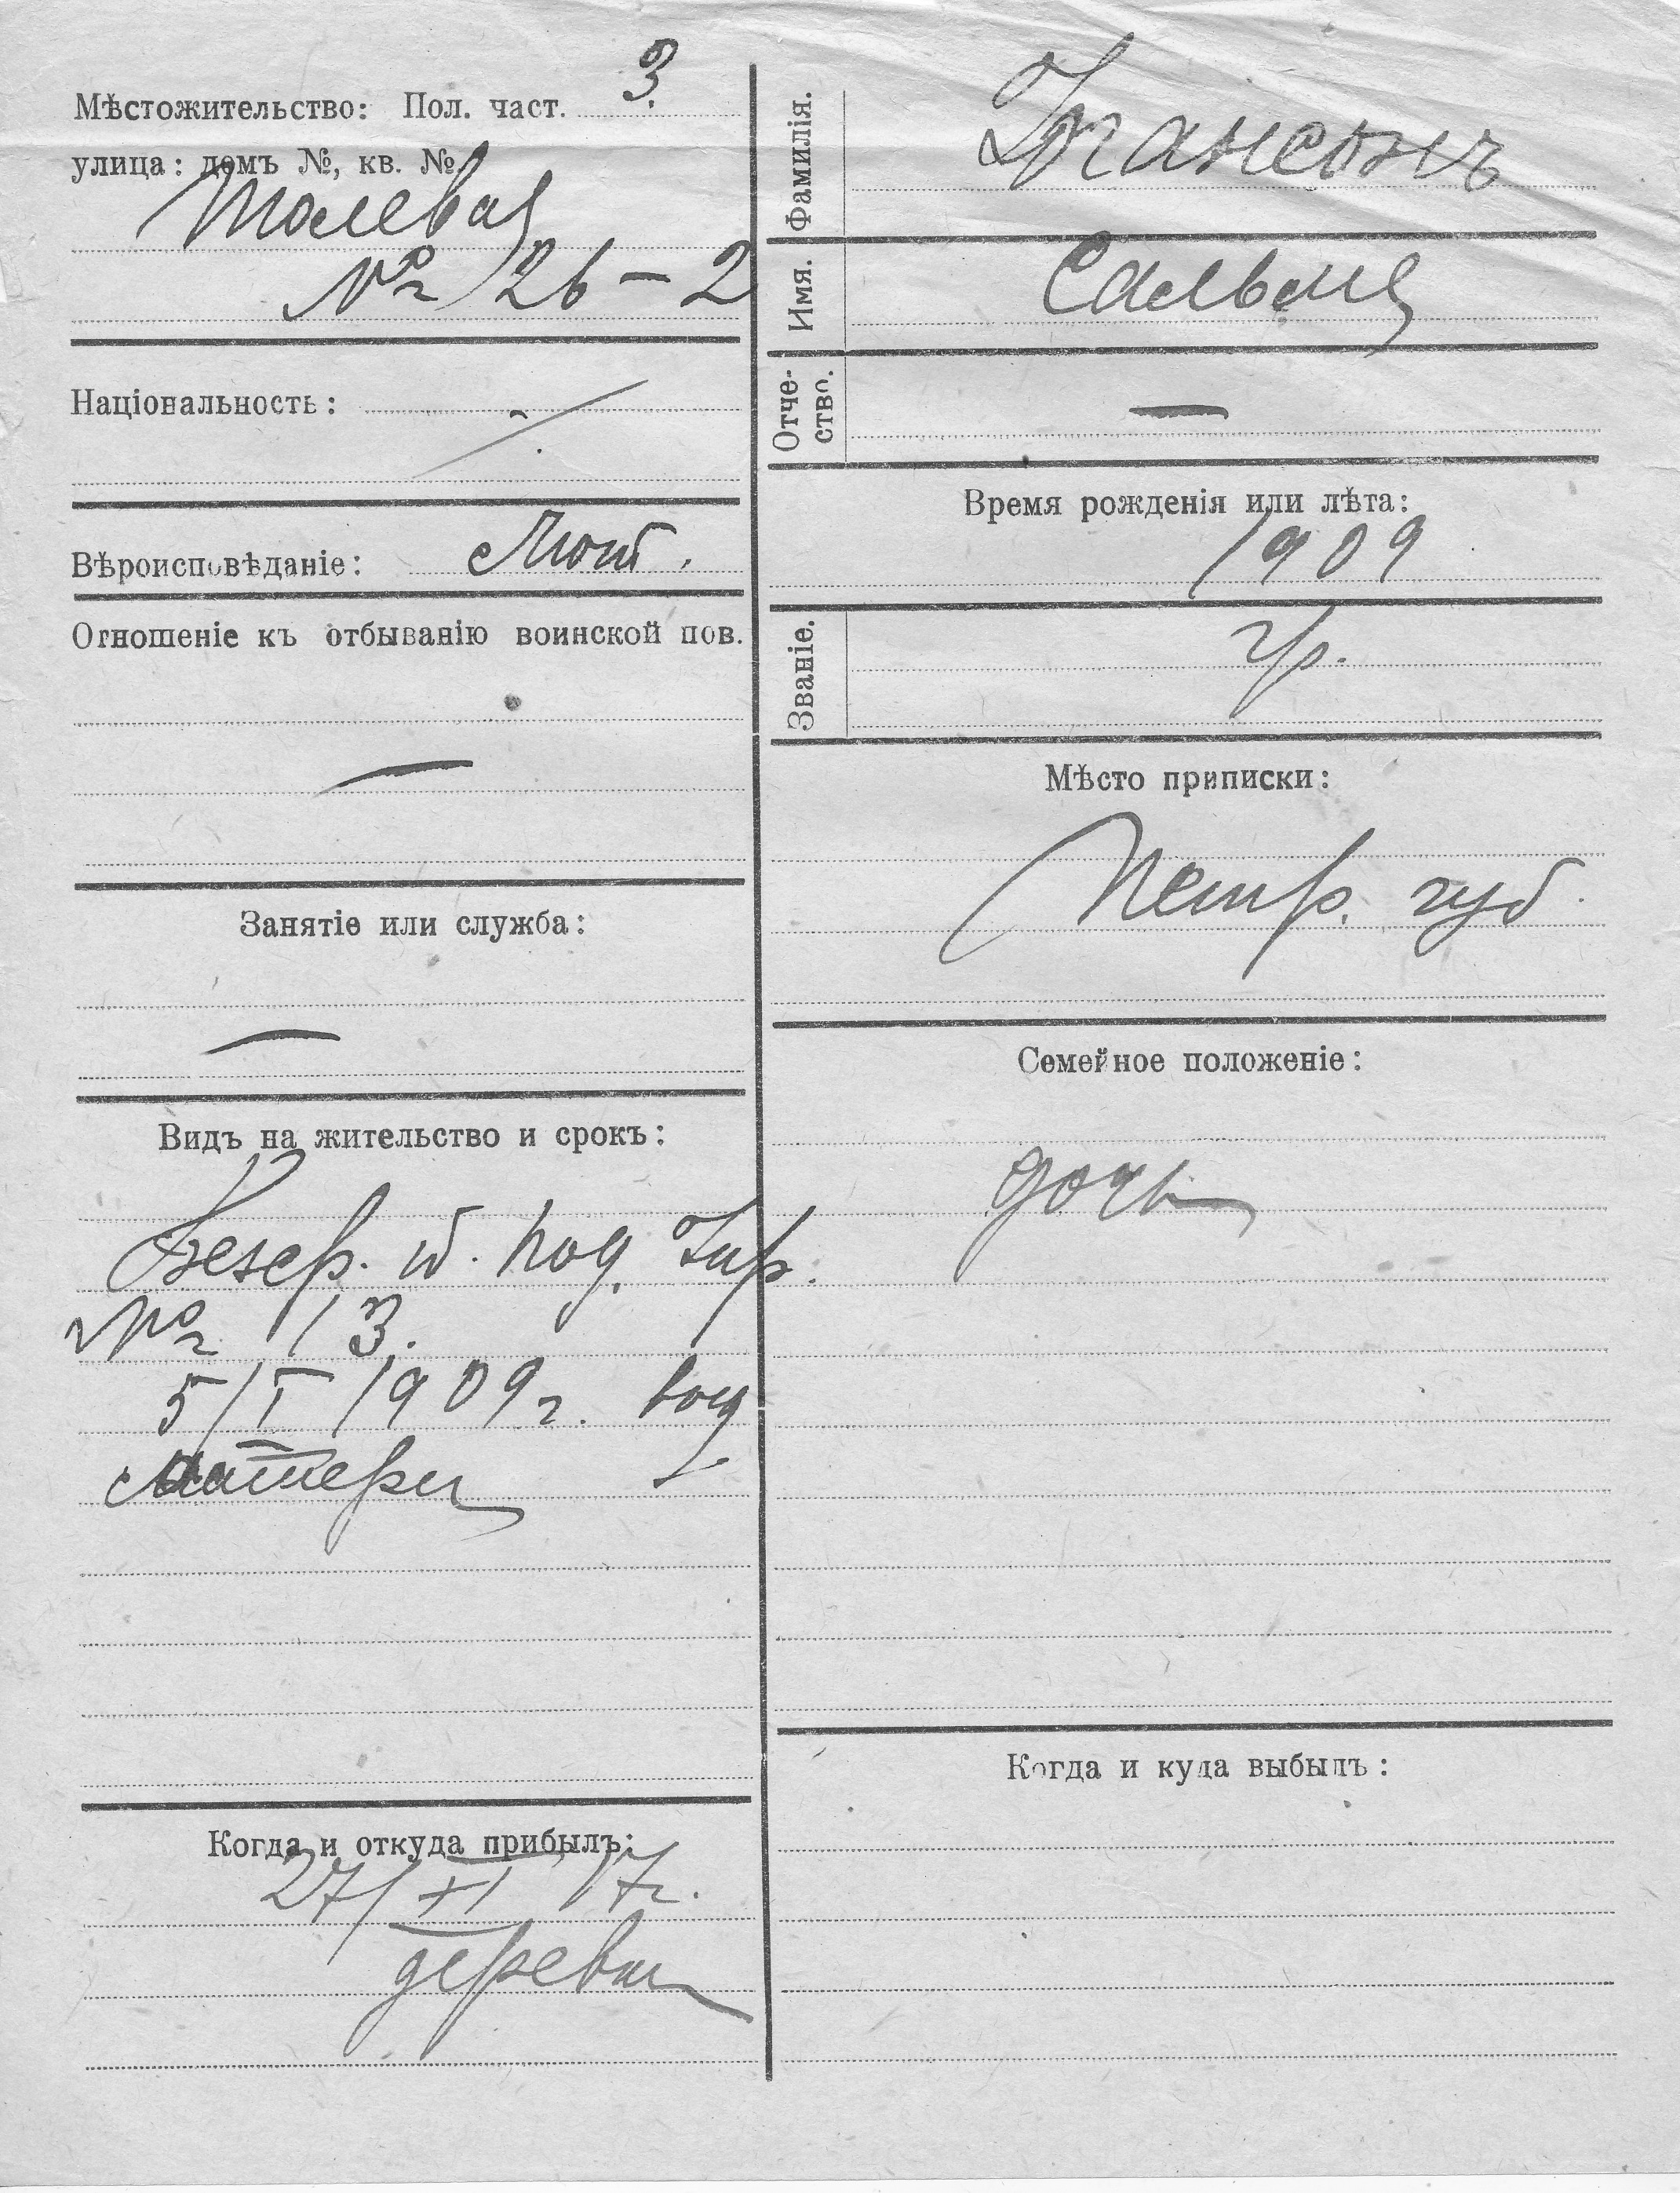 Мѣстожительство: Пол. част. 3.
улица: домъ №, кв. №
№ 26 – 2
Національность:
Вѣроисповѣданіе: Лют.
Отношеніе къ отбыванію воинской пов.
—
Занятіе или служба:
—
Видъ на жительство и срокъ:
№ 13.
5/I 1909 г.
матери
Когда и откуда прибылъ:
27/XI 17 г.
деревни
Фамилія.
Имя.
Отче-
ство. —
Время рожденія или лѣта:
1909
Званіе. гр.
Мѣсто приписки:
Петр. губ.
Семейное положеніе:
дочь
Когда и куда выбылъ: